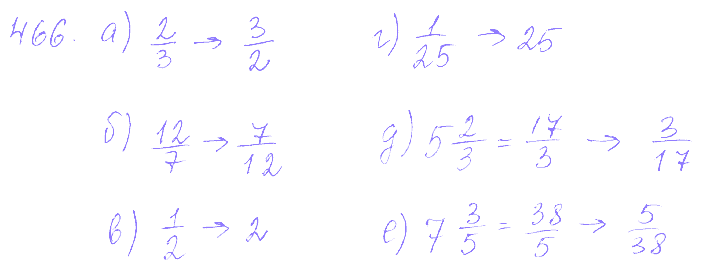 466. а) 2/3 → 3/2 г) 1/25 → 25
б) 12/7 → 7/12 д) 5 2/3 = 17/3 → 3/17
в) 1/2 → 2 е) 7 3/5 = 38/5 → 5/38